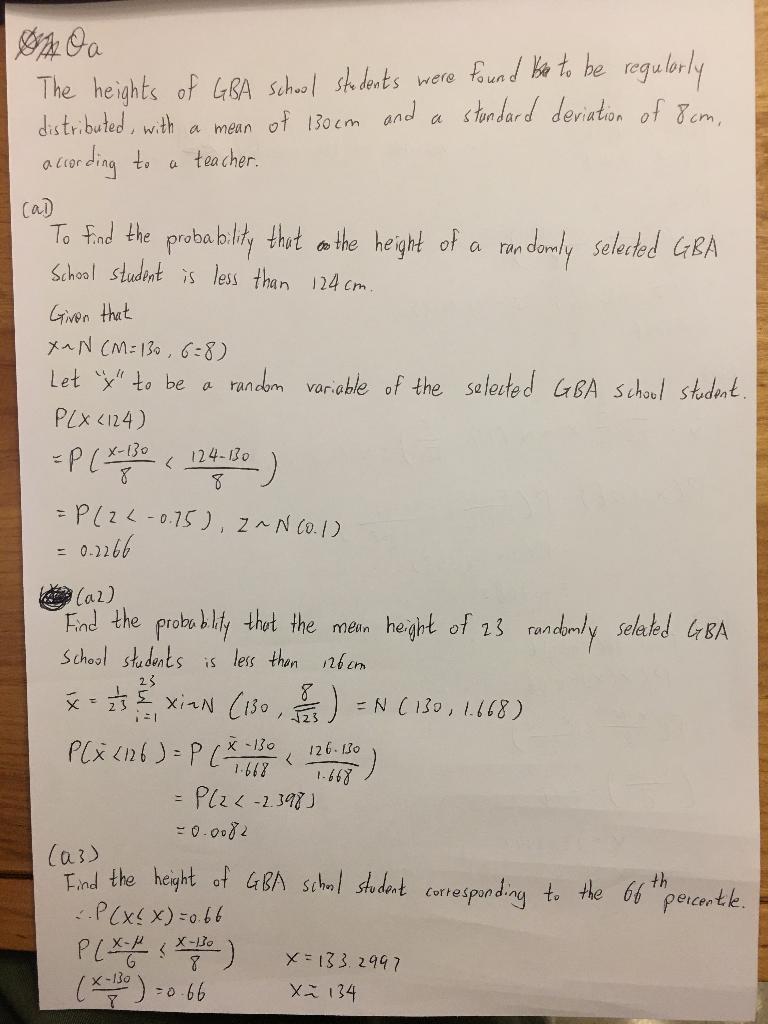 Qa
The heights of GBA school students were found to be regularly
distributed, with a mean of 130cm and a standard deviation of 8cm,
according to a teacher.
(a1)
To find the probability that the height of a randomly selected GBA
School student is less than 124cm.
Given that
X~N (M=130, 6=8)
Let "x" to be a random variable of the selected GBA school student.
P(X<124)
=P(\frac{X-130}{8} < \frac{124-130}{8})
= P(Z < -0.75), Z~N(0.1)
= 0.2266
(a2)
Find the probability that the mean height of 23 randomly selected GBA
School students is less than 126cm
x̄ = \frac{1}{23} \sum_{i=1}^{23} xi~N (130, \frac{8}{\sqrt{23}}) = N (130, 1.668)
P(x̄<126) = P(\frac{x̄-130}{1.668} < \frac{126-130}{1.668})
= P(Z < -2.398)
= 0.0082
(a3)
Find the height of GBA school student corresponding to the 66th percentile.
∴P(X≤x)=0.66
P(\frac{X-μ}{6} ≤ \frac{X-130}{8}) X=133.2997
(\frac{X-130}{8})=0.66 X≈134